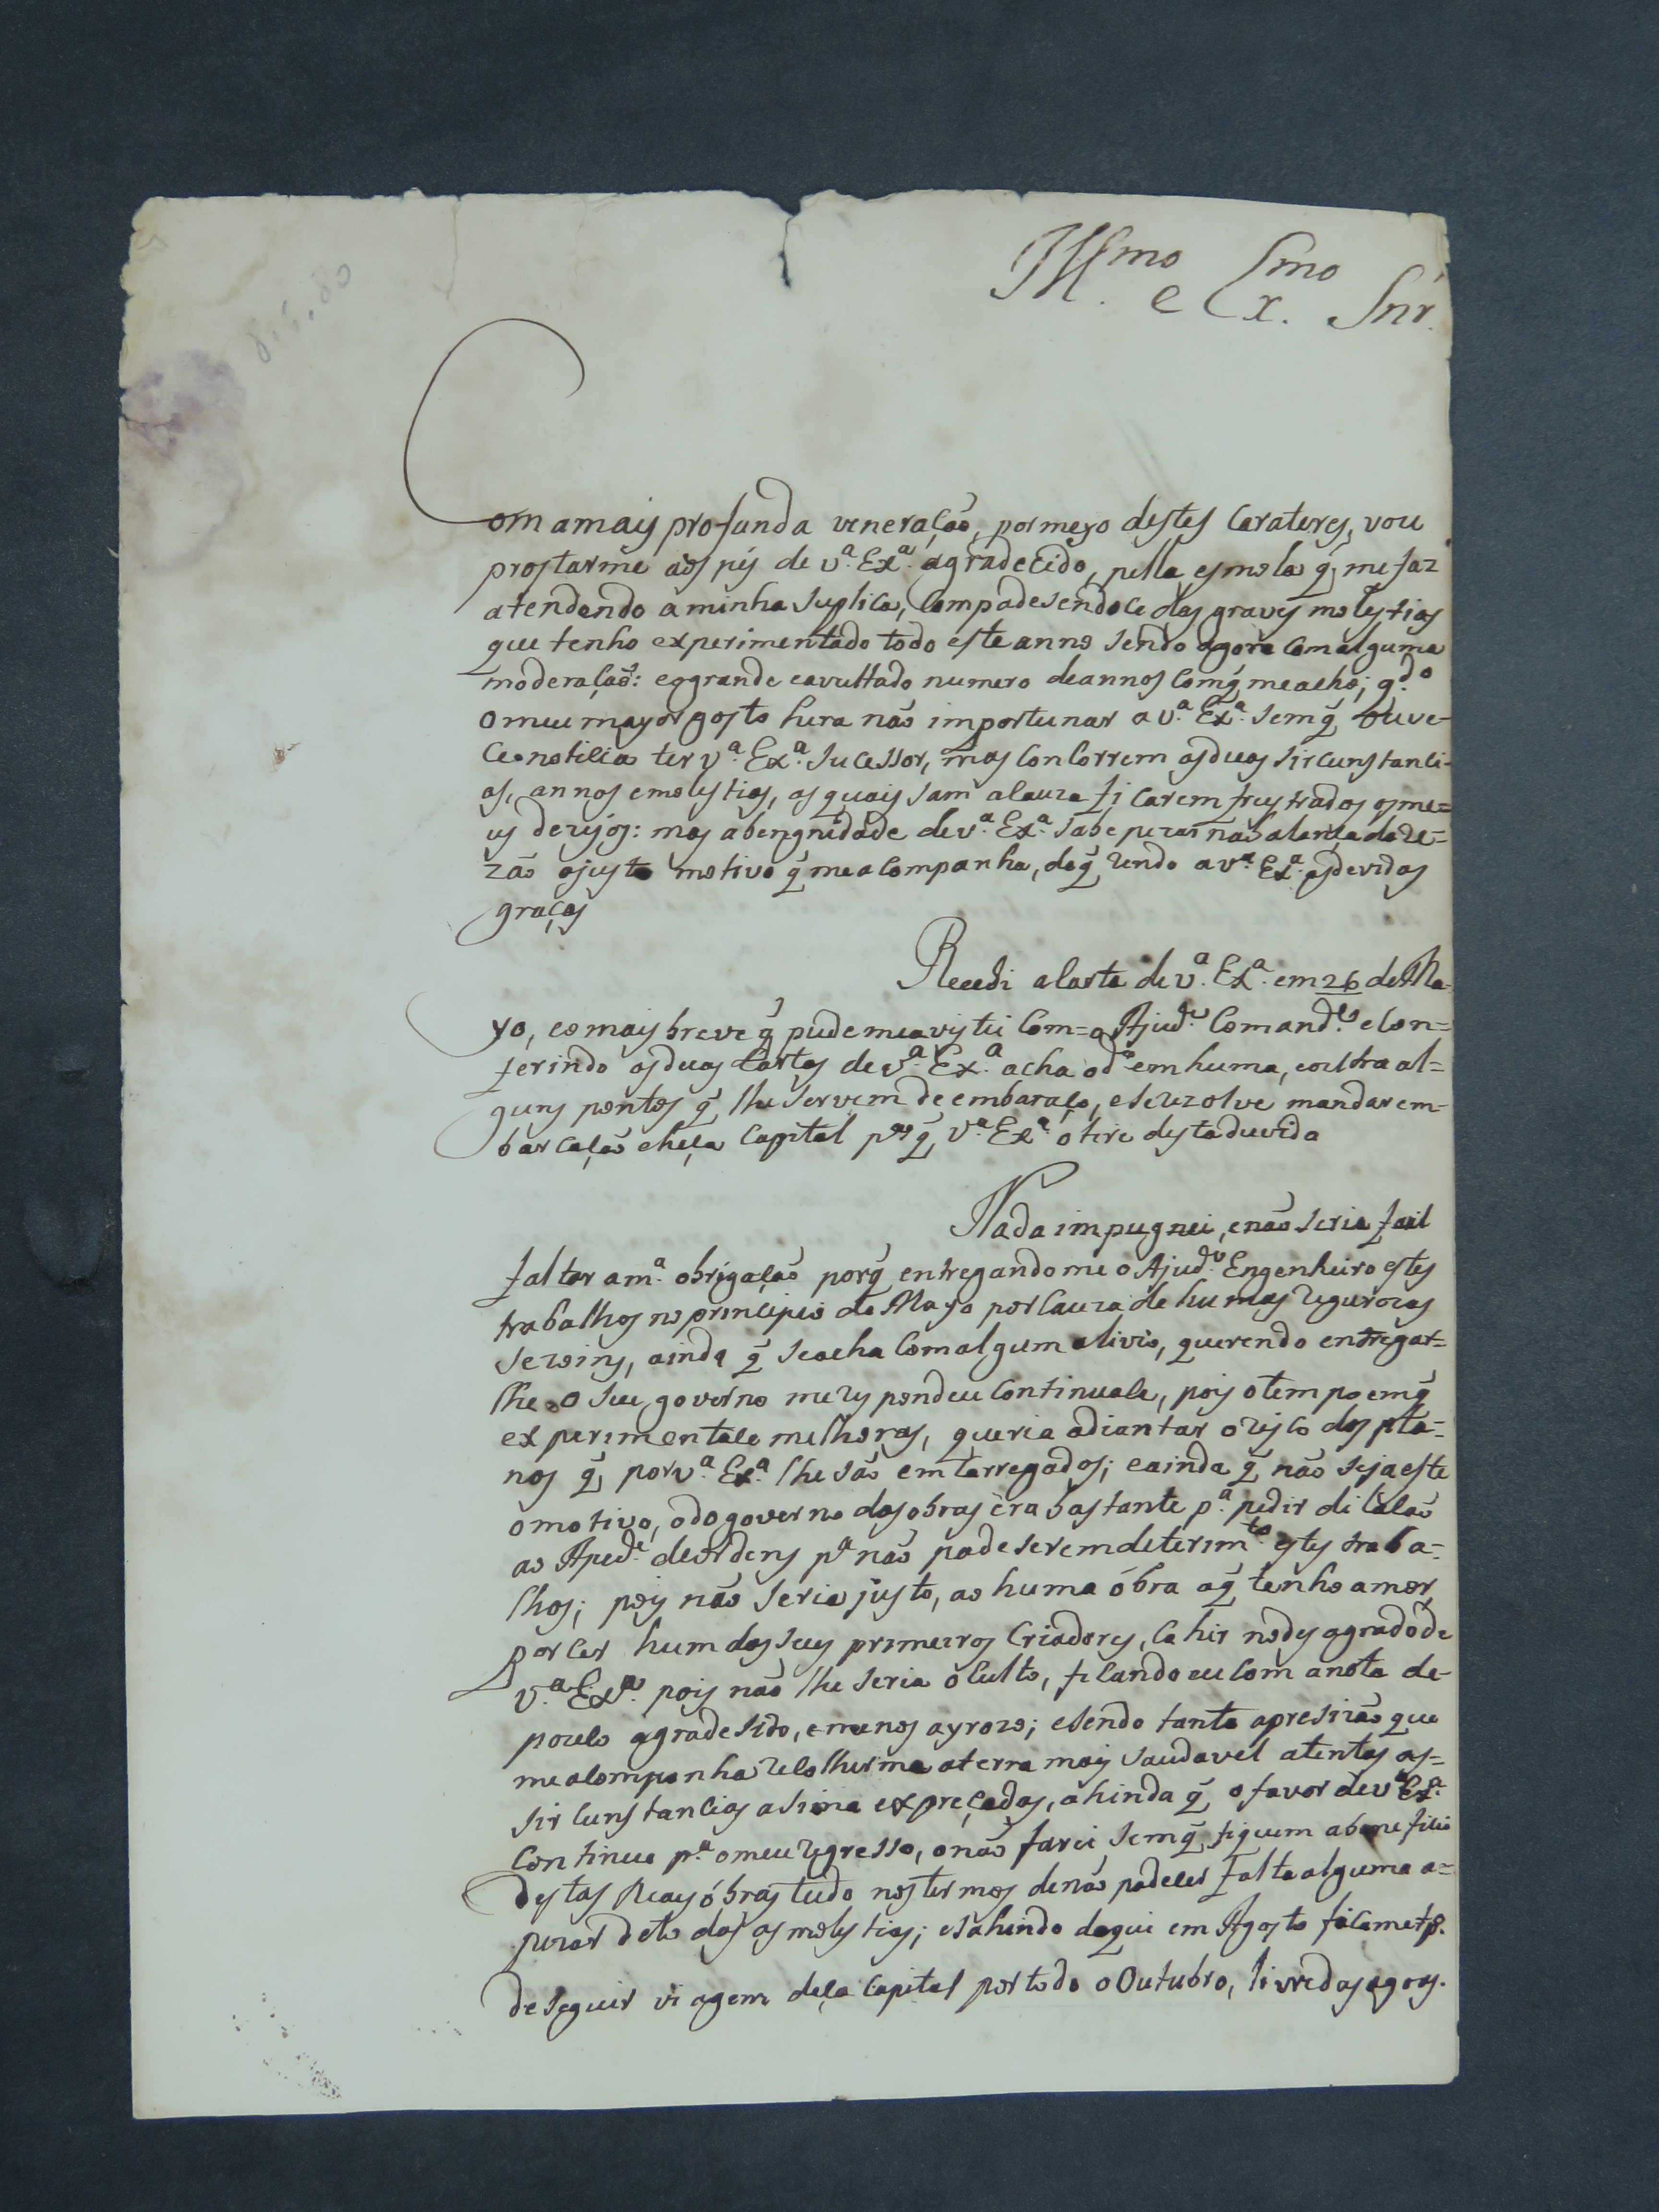 Ill.mo e Ex.mo Snr.
Com a mays profunda veneração, por meyo destes Carateres, vou
prostarme aos pés de v.ª Ex.ª agradecido, pella esmola q̃ me faz
atendendo a minha suplica, Compadesendoce das graves molestias
que tenho experimentado todo este anno sendo agora Com alguma
moderação: e o grande e avultado numero de annos Com q̃ me acho; q.do
o meu mayor gosto hera não importunar a v.ª Ex.ª sem q̃ ouve-
Ce notilia ter v.ª Ex.ª sucessor, mas ConCorrem as duas sirCunstanci-
as, annos e molestias, as quais sam a Cauza fiCarem frustrados os me=
us dezejos: mas a bengnidade de v.ª Ex.ª sabe pezar na balança da re-
zão o justo motivo q̃ me aCompanha, do q̃ rendo a v.ª Ex.ª as devidas
graças
Recebi a Carta de v.ª Ex.ª em 26 de Ma-
yo, e o mays breve q̃ pude me avistei Com=o Ajud.e Comand.e e Con=
ferindo as duas Cartas de v.ª Ex.ª acha o d.º em huma, e outra al=
guns pontos q̃ lhe servem de embaraço, e se rezolve mandar em-
barcação a heça Capital p.ª q̃ V.ª Ex.ª o tire desta duvida
Nada impugnei, e não seria facil
faltar a m.ª obrigação porq̃ entregandome o Ajud.e Engenheiro estes
trabalhos no principio de Mayo por Cauza de humas regurozas
sezoins, ainda q̃ se acha Com algum alivio, querendo entregar-
lhe o seu governo me respondeu Continuace, pois o tempo em q̃
experimentace melhoras, queria adiantar o risco dos pla=
nos q̃ por v.ª Ex.ª lhe são emCarregados; e ainda q̃ não seja este
o motivo, o do governo das obras éra bastante p.ª pedir diCação
ao Ajud.e de ordens p.ª não padeserem deterim.to estes traba=
lhos; pois não seria justo, ao huma óbra a q̃ tenho amor,
por cer hum dos seus primeiros Criadores, Cahir no desagrado de
v.ª Ex.ª pois não lhe seria oCulto, fiCando eu Com a nota de
pouco agradesido, e menos ayrozo; e sendo tanta a presizão que
me aCompanha reColherme a terra mais saudavel atentas as=
sirCunstancias asima expreçadas, ahinda q̃ o favor de v.ª Ex.ª
Continue p.ª o meu regresso, o não farei sem q̃ fiquem a benefiCio
destas Reays óbras tudo nos termos de não padecer falta alguma a=
pezar de todas as molestias; e sahindo daqui em Agosto fiCame tp.
de seguir viagem deça Capital por todo o Outubro, livre das agoas.